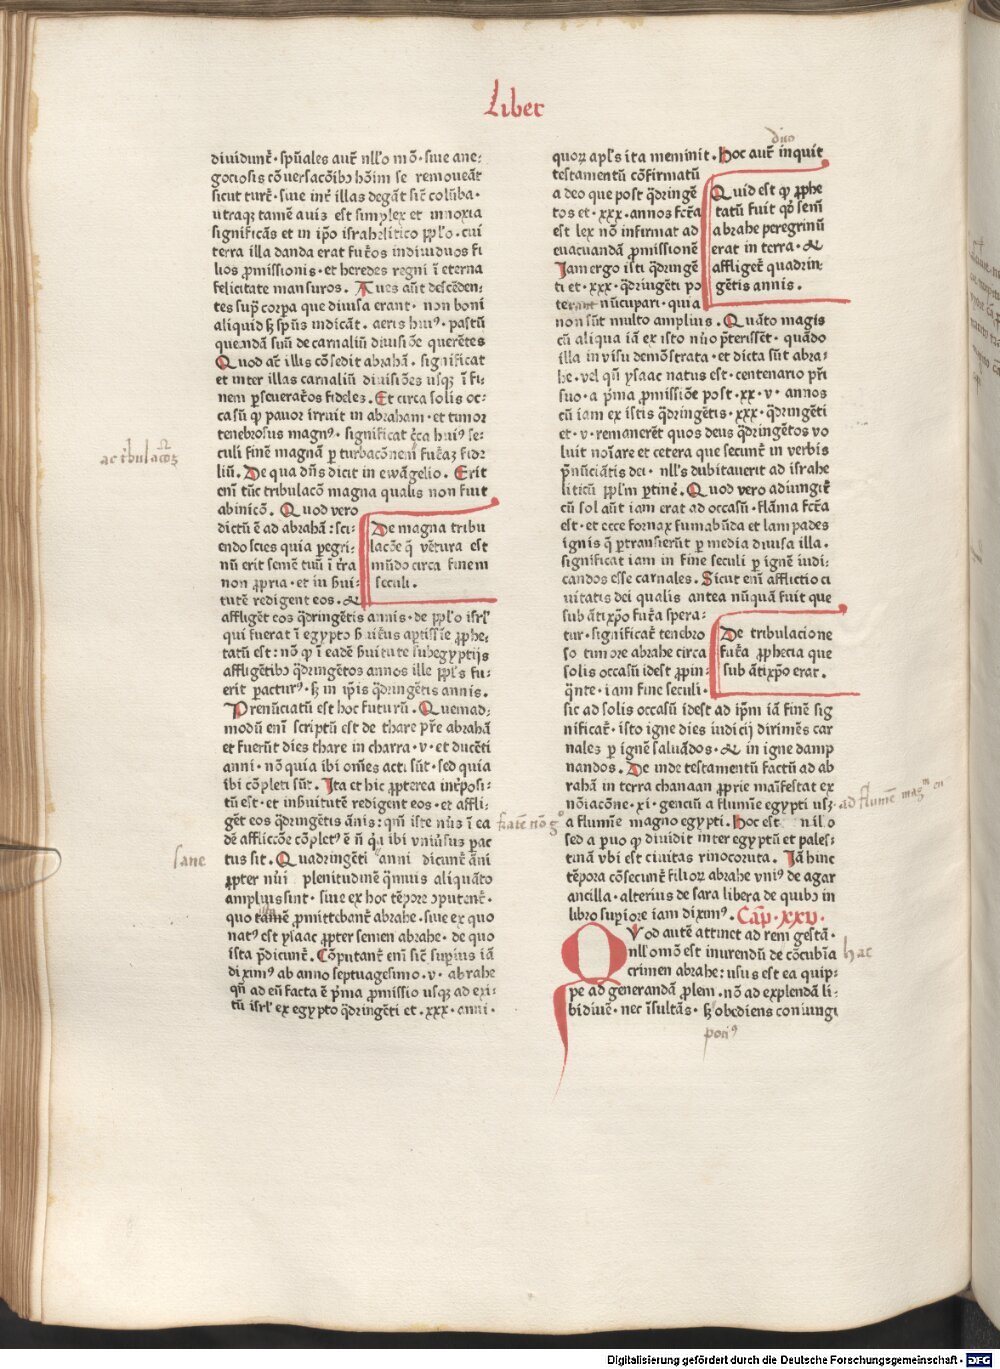 Liber
diuidunt᷑ · spũales aut᷑ nll'o mõ · siue a ne:
gociosis cõuersacõibꝫ hõim se remoueãt
sicut turt᷑ · siue int᷑ illas degãt sic᷑ colũba ·
utraqꝫ tamẽ auis est simplex et innoxia
significãs et in ip̃o israhelitico pp̃lo · cui
terra illa danda erat fut᷑os indiuiduos fi
lios ꝓmissionis · et heredes regni ĩ eterna
felicitate mansuros · Aues aũt descẽden:
tes sup̃ corpa que diuisa erant · non boni
aliquid sꝫ sp̃us indicãt · aeris huiꝰ · pastũ
quendã suũ de carnaliũ diuisiõe querẽtes
Quod at᷑ illis cõsedit abrahã · significat
et inter illas carnaliũ diuisiões usqꝫ ĩ fi:
nem ꝑseuerat᷑os fideles · Et circa solis oc:
casũ ꝙ pauor irruit in abraham · et timor
tenebrosus magnꝰ · significat c᷑ca huiꝰ se:
culi finẽ magnã ꝑturbacõnem fut᷑aꝫ fide
liũ · De qua dñs dicit in ewãgelio · Erit
eni᷑ tũc tribulacõ magna qualis non fuit
ab inicõ · Quod vero
dictũ ẽ ad abrahã : sci:
endo scies quia ꝑegri:
nũ erit semẽ tuũ ĩ t᷑ra
non ꝓpria · et in ẜui:
tutẽ redigent eos · &
De magna tribu
lacõe q̃ vẽtura est
mũdo circa finem
seculi ·
affligẽt eos q̈dringẽtis annis · de pp̃lo isrl'
qui fuerat ĩ egypto ẜuit᷑us aptissĩe ꝓphe:
tatũ est : nõ ꝙ ĩ eadẽ ẜuitute sub egyptijs
affligẽtibꝫ q̈dringẽtos annos ille pp̃ls fu:
erit ꝑacturꝰ · sꝫ in ip̃is q̈dringẽtis annis ·
Prenũciatũ est hoc futurũ · Quemad:
modũ eni᷑ scriptũ est de thare pr̃e abrahã
et fuerũt dies thare in charra · v · et ducẽti
anni · nõ quia ibi om̃es acti sũt · sed quia
ibi cõpleti sũt · Ita et hic ꝓpterea int᷑posi:
tũ est · et in ẜuitutẽ redigent eos · et affli:
gẽt eos q̈dringẽtis ãnis : qm̃ iste nũs ĩ ea
dẽ afflicõe cõplet᷑ ẽ nõ q̃a ibi vniũsus ꝑac
tus sit · Quadringẽti anni dicunt᷑ ãni
ꝓpter nũi plenitudinẽ q̈muis aliquãto
amplius sint · siue ex hoc tẽpore ↄputent᷑ ·
quo tamẽ ꝓmittebant᷑ abrahe · siue ex quo
natꝰ est ysaac ꝓpter semen abrahe · de quo
ista p̃dicunt᷑ · Cõputant᷑ eni᷑ sic᷑ suꝑius iã
diximꝰ ab anno septuagesimo · v · abrahe
qñ ad eũ facta ẽ p̃ma ꝓmissio usqꝫ ad exi:
tũ isrl' ex egypto q̈dringẽti et · xxx · anni ·
ac tribulacõꝫ
sane
fratẽ nõ gͦ
dico
quoꝝ apl's ita meminit · Hoc aut᷑ inquit
testamentũ cõfirmatũ
a deo que post q̈dringẽ
tos et · xxx · annos fc̃ta
est lex nõ infirmat ad
euacuandã ꝓmissionẽ
Iam ergo isti q̈dringẽ
ti et · xxx · q̈dringẽti po
terant nũcupari · quia
Quid est ꝙ ꝓphe
tatũ fuit qd̾ semẽ
abrahe peregrinũ
erat in terra · &
affliget᷑ quadrin:
gẽtis annis ·
non sũt multo amplius · Quãto magis
cũ aliqua iã ex isto nũo p̃terissẽt · quãdo
illa in visu demõstrata · et dicta sũt abra:
he · vel qñ ysaac natus est · centenario pr̃i
suo · a p̃ma ꝓmissiõe post · xx · v · annos
cũ iam ex istis q̈dringẽtis · xxx · q̈dringẽti
et · v · remanerẽt quos deus q̈dringẽtos vo
luit noĩare et cetera que secunt᷑ in verbis
p̃nũciãtis dei · nll's dubitauerit ad israhe
liticũ pp̃l'm ꝑtinẽ · Quod vero adiungit᷑
cũ sol aũt iam erat ad occasũ · flãma fc̃ta
est · et ecce fornax fumabũda et lampades
ignis q̃ ꝑtransierũt ꝑ media diuisa illa ·
significat iam in fine seculi ꝑ ignẽ iudi:
candos esse carnales · Sicut eni᷑ afflictio ci
uitatis dei qualis antea nũquã fuit que
sub ãtixp̃o fut᷑a spera:
tur · significat᷑ tenebro
so timore abrahe circa
solis occasũ idest ꝓpin:
q̈nte · iam fine seculi ·
De tribulacione
fut᷑a ꝓphecia que
sub ãtixp̃o erat ·
sic ad solis occasũ idest ad ip̃m iã finẽ sig
nificat᷑ · isto igne dies iudicij dirimẽs car
nales ꝑ ignẽ saluãdos · & in igne damp
nandos · De inde testamentũ factũ ad ab
rahã in terra chanaan ꝓprie mani᷑festat ex
nõiacõne · xi · genciũ a flumie᷑ egypti usꝫ
a flumie᷑ magno egypti · Hoc est nilo
sed a paruo ꝙ diuidit inter egyptũ et pales:
tinã vbi est ciuitas rinocoruta · Iã hinc
tẽpora cõsecunt᷑ filioꝝ abrahe vniꝰ de agar
ancilla · alterius de sara libera de quibꝫ in
libro suꝑiore iam diximꝰ · Cap̃ · xxv ·
Quod autẽ attinet ad rem gestã ·
nll'o modo est inurendũ de cõcubĩa
crimen abrahe : usus est ea quip:
pe ad generandã ꝓlem · nõ ad explendã li:
bidinẽ · nec ĩsultãs · sꝫ obediens coniungi
ad flumẽ magᵐ
hac
pociꝰ
Digitalisierung gefördert durch die Deutsche Forschungsgemeinschaft - DFG